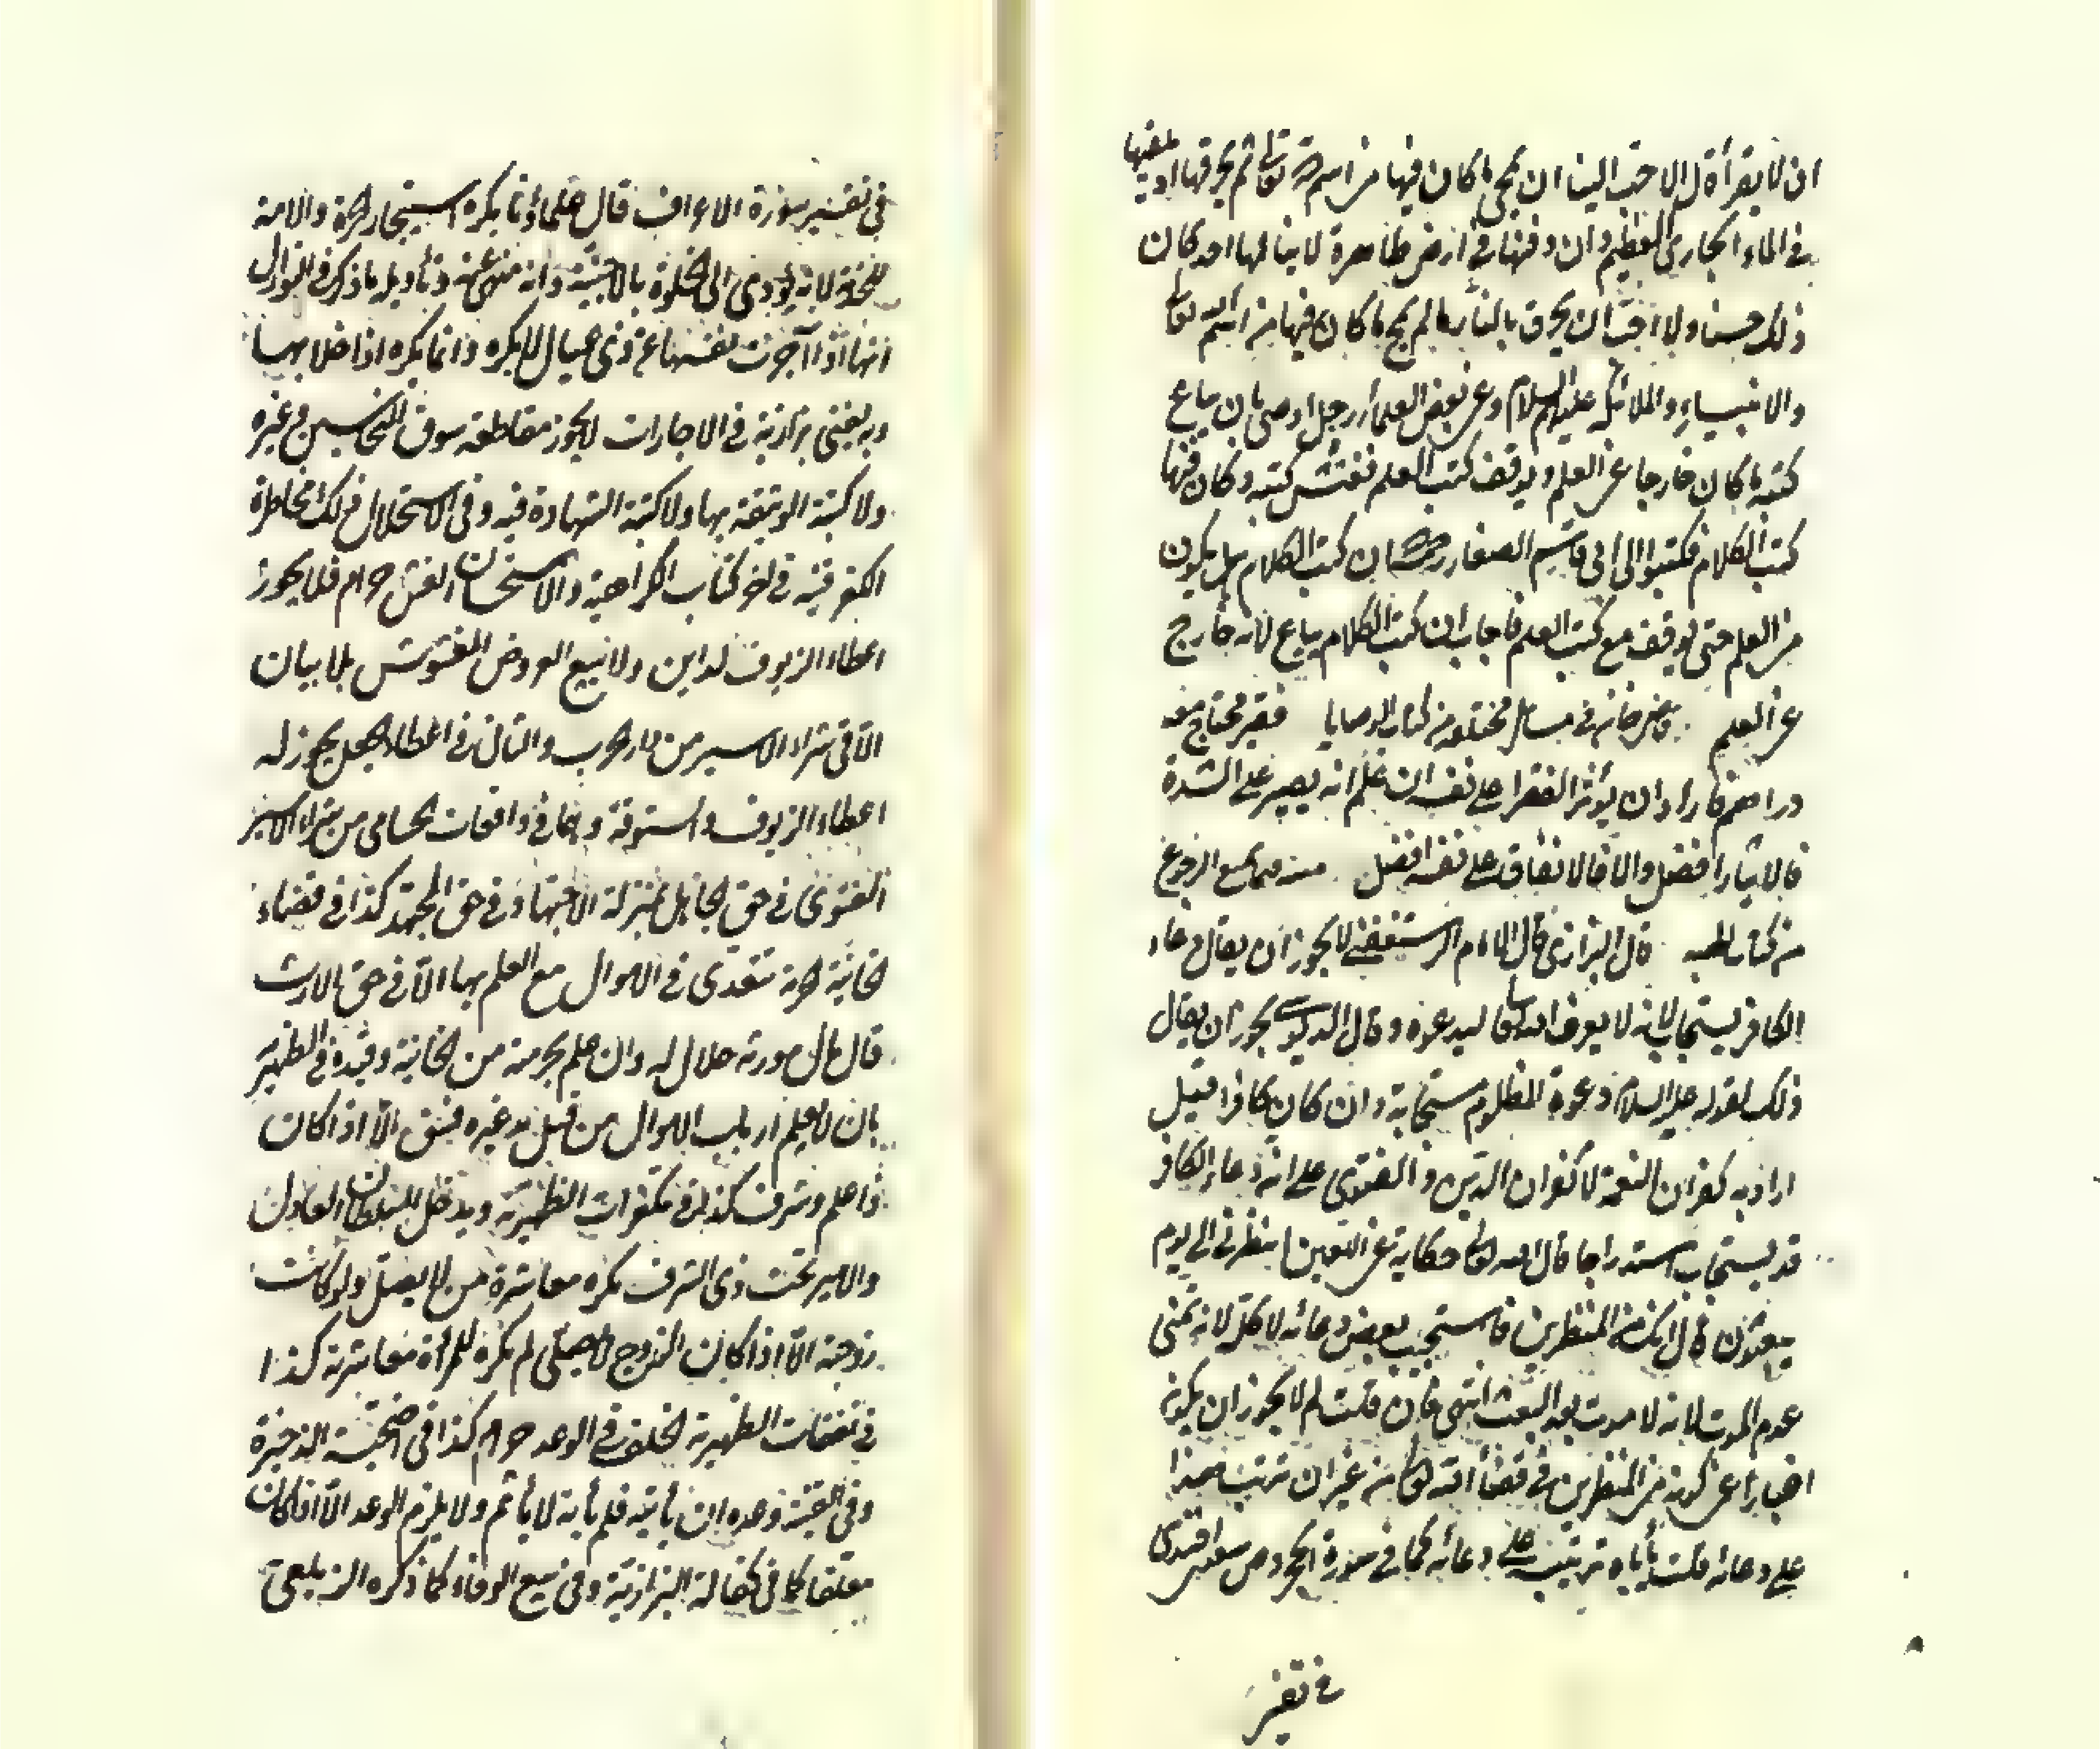 ان لا يقرأه لالاحب الينا ان يمحي ما كان فيها من اسم الله تعالى ثم يحرقها او يلقيها
في الماء الجاري العظيم وان دفنها في ارض طاهرة لا ينالها احد كان
ذلك حسنا ولا احب ان يحرق بالنار ما لم يمح ما كان فيها من اسم الله تعالى
والانبياء والملائكه عليهم السلام وعن بعض العلماء رجل اوصى بان يباع
كتبه ما كان خارجا عن العلم ويوقف كتب العلم ففتش كتبه وكان فيها
كتب الكلام فكتبوا الى ابي قاسم الصفار ان كتب الكلام هل يكون
من العلم حتى يوقف مع كتب العلم فاجاب ان كتب الكلام يباع لانه خارج
عن العلم في مسائل مختلفه من كتاب الوصايا فقير محتاج معه
دراهم فاراد ان يؤثر الفقراء على نفسه ان علم انه يصير على الشدة
فالايثار افضل والا فالانفاق على نفسه افضل منه الرجوع
من كتاب الهبه قال البزازي قال الامام الرستغفني لا يجوز ان يقال دعاء
الكافر يستجاب لانه لا يعرف الله تعالى ليدعوه وقال الدبوسي يجوز ان يقال
ذلك لقوله عليه السلام دعوة المظلوم مستجابة وان كان كافرا قيل
اراد به كفران النعمة لا كفران الدين والفتوى على انه دعاء الكافر
قد يستجاب استدراجا قال الله تعالى حكاية عن اللعين انظرني الى يوم
يبعثون قال انك من المنظرين فاستجيب بعض دعائه لا كله لانه تمنى
عدم الموت لانه لا موت بعد البعث انتهى فان قلت لم لا يجوز ان يكون
اخبارا عن كونه من المنظرين في قضاء الله تعالى من غير ان ترتب هذا
على دعائه قلت يأباه ترتيبه على دعائه كما في سورة الحجر وص سعدى افندى
في تفسير
في تفسير سورة الاعراف قال علماؤنا يكره استيجار الحرة والامة
للخدمة لانه يؤدى الى الخلوة بالاجنبية وانه منهى عنه وتأويله ما ذكر في النوازل
انها اذا آجرت نفسها من ذى عيال لا يكره وانما يكره اذا خلا بها
وبه يفتى بزازية في الاجارات لا يجوز مقاطعة سوق النخاسين وغيره
ولا كتبة الوثيقة بها ولا كتبة الشهادة فيه وفى الاستحلال ذلك مخاطرة
الكفر قنيه في اخر كتاب الكراهية والاستحسان الغش حرام فلا يجوز
اعطاء الزيوف لداين ولا بيع العروض المغشوش بلا بيان
الا في شراء الاسير من دار الحرب والثاني في اعطاء الجعل يجوز له
اعطاء الزيوف والستوقة وهما في واقعات الحسامى من شراء الاسير
الفتوى في حق الجاهل بمنزلة الاجتهاد في حق المجتهد كذا في قضاء
الخانية الحرمة تتعدى في الاموال مع العلم بها الا في حق الوارث
قال مال مورثه حلال له وان علم بحرمته من الخانية وقيده في الظهيرية
بان لا يعلم ارباب الاموال من قبل يد غيره فسق الا اذا كان
ذا علم وشرف كذا في مكفرات الظهيرية ويدخل السلطان العادل
والامير تحت ذى الشرف يكره معاشرة من لا يصلى ولو كانت
زوجته الا اذا كان الزوج لا يصلى لم يكره للمرأة معاشرته كذا
في نفقات الظهيرية الخلف في الوعد حرام كذا في اضحية الذخيرة
وفى القنية وعده ان يأتيه فلم يأته لا يأثم ولا يلزم الوعد الا اذا كان
معلقا كما في كفالة البزازية وفى بيع الوفاء كما ذكره الزيلعى